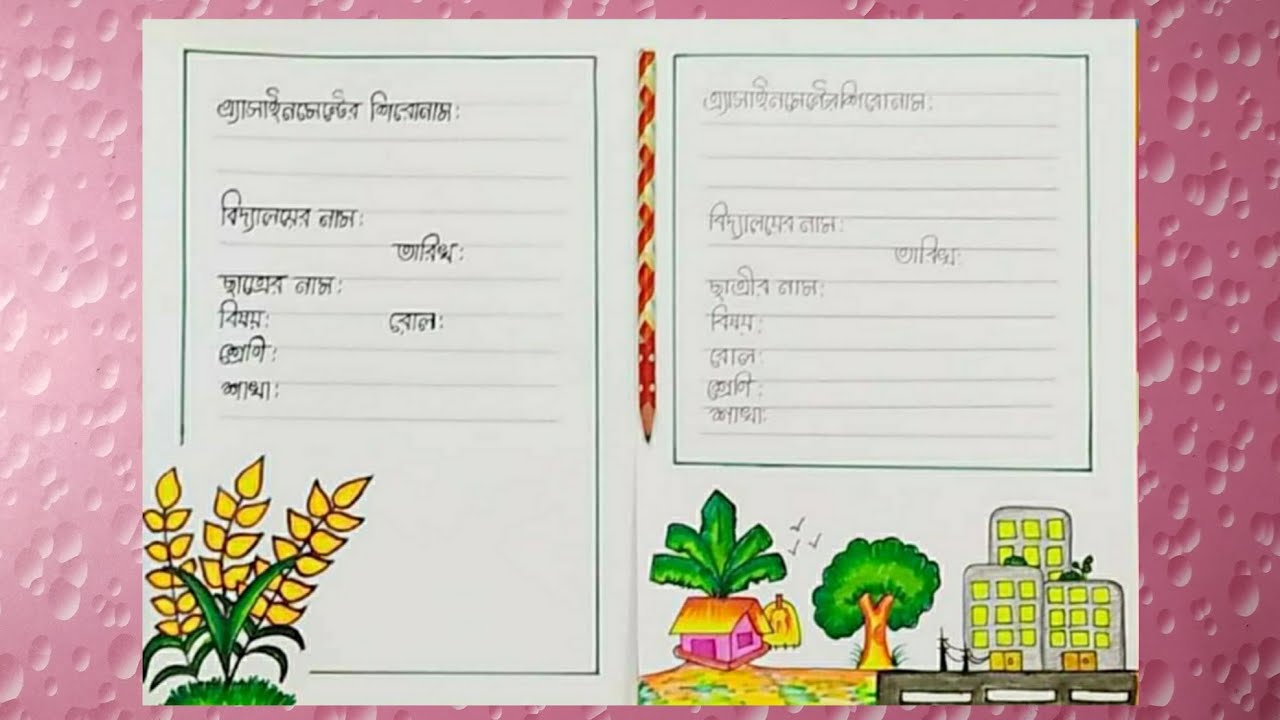 এ্যাসাইনমেন্টের শিরোনাম:
বিদ্যালয়ের নাম:
তারিখ:
ছাত্রের নাম:
বিষয়: রোল:
শ্রেণি:
শাখা:
এ্যাসাইনমেন্টের শিরোনাম:
বিদ্যালয়ের নাম:
তারিখ:
ছাত্রীর নাম:
বিষয়:
রোল:
শ্রেণি:
শাখা: